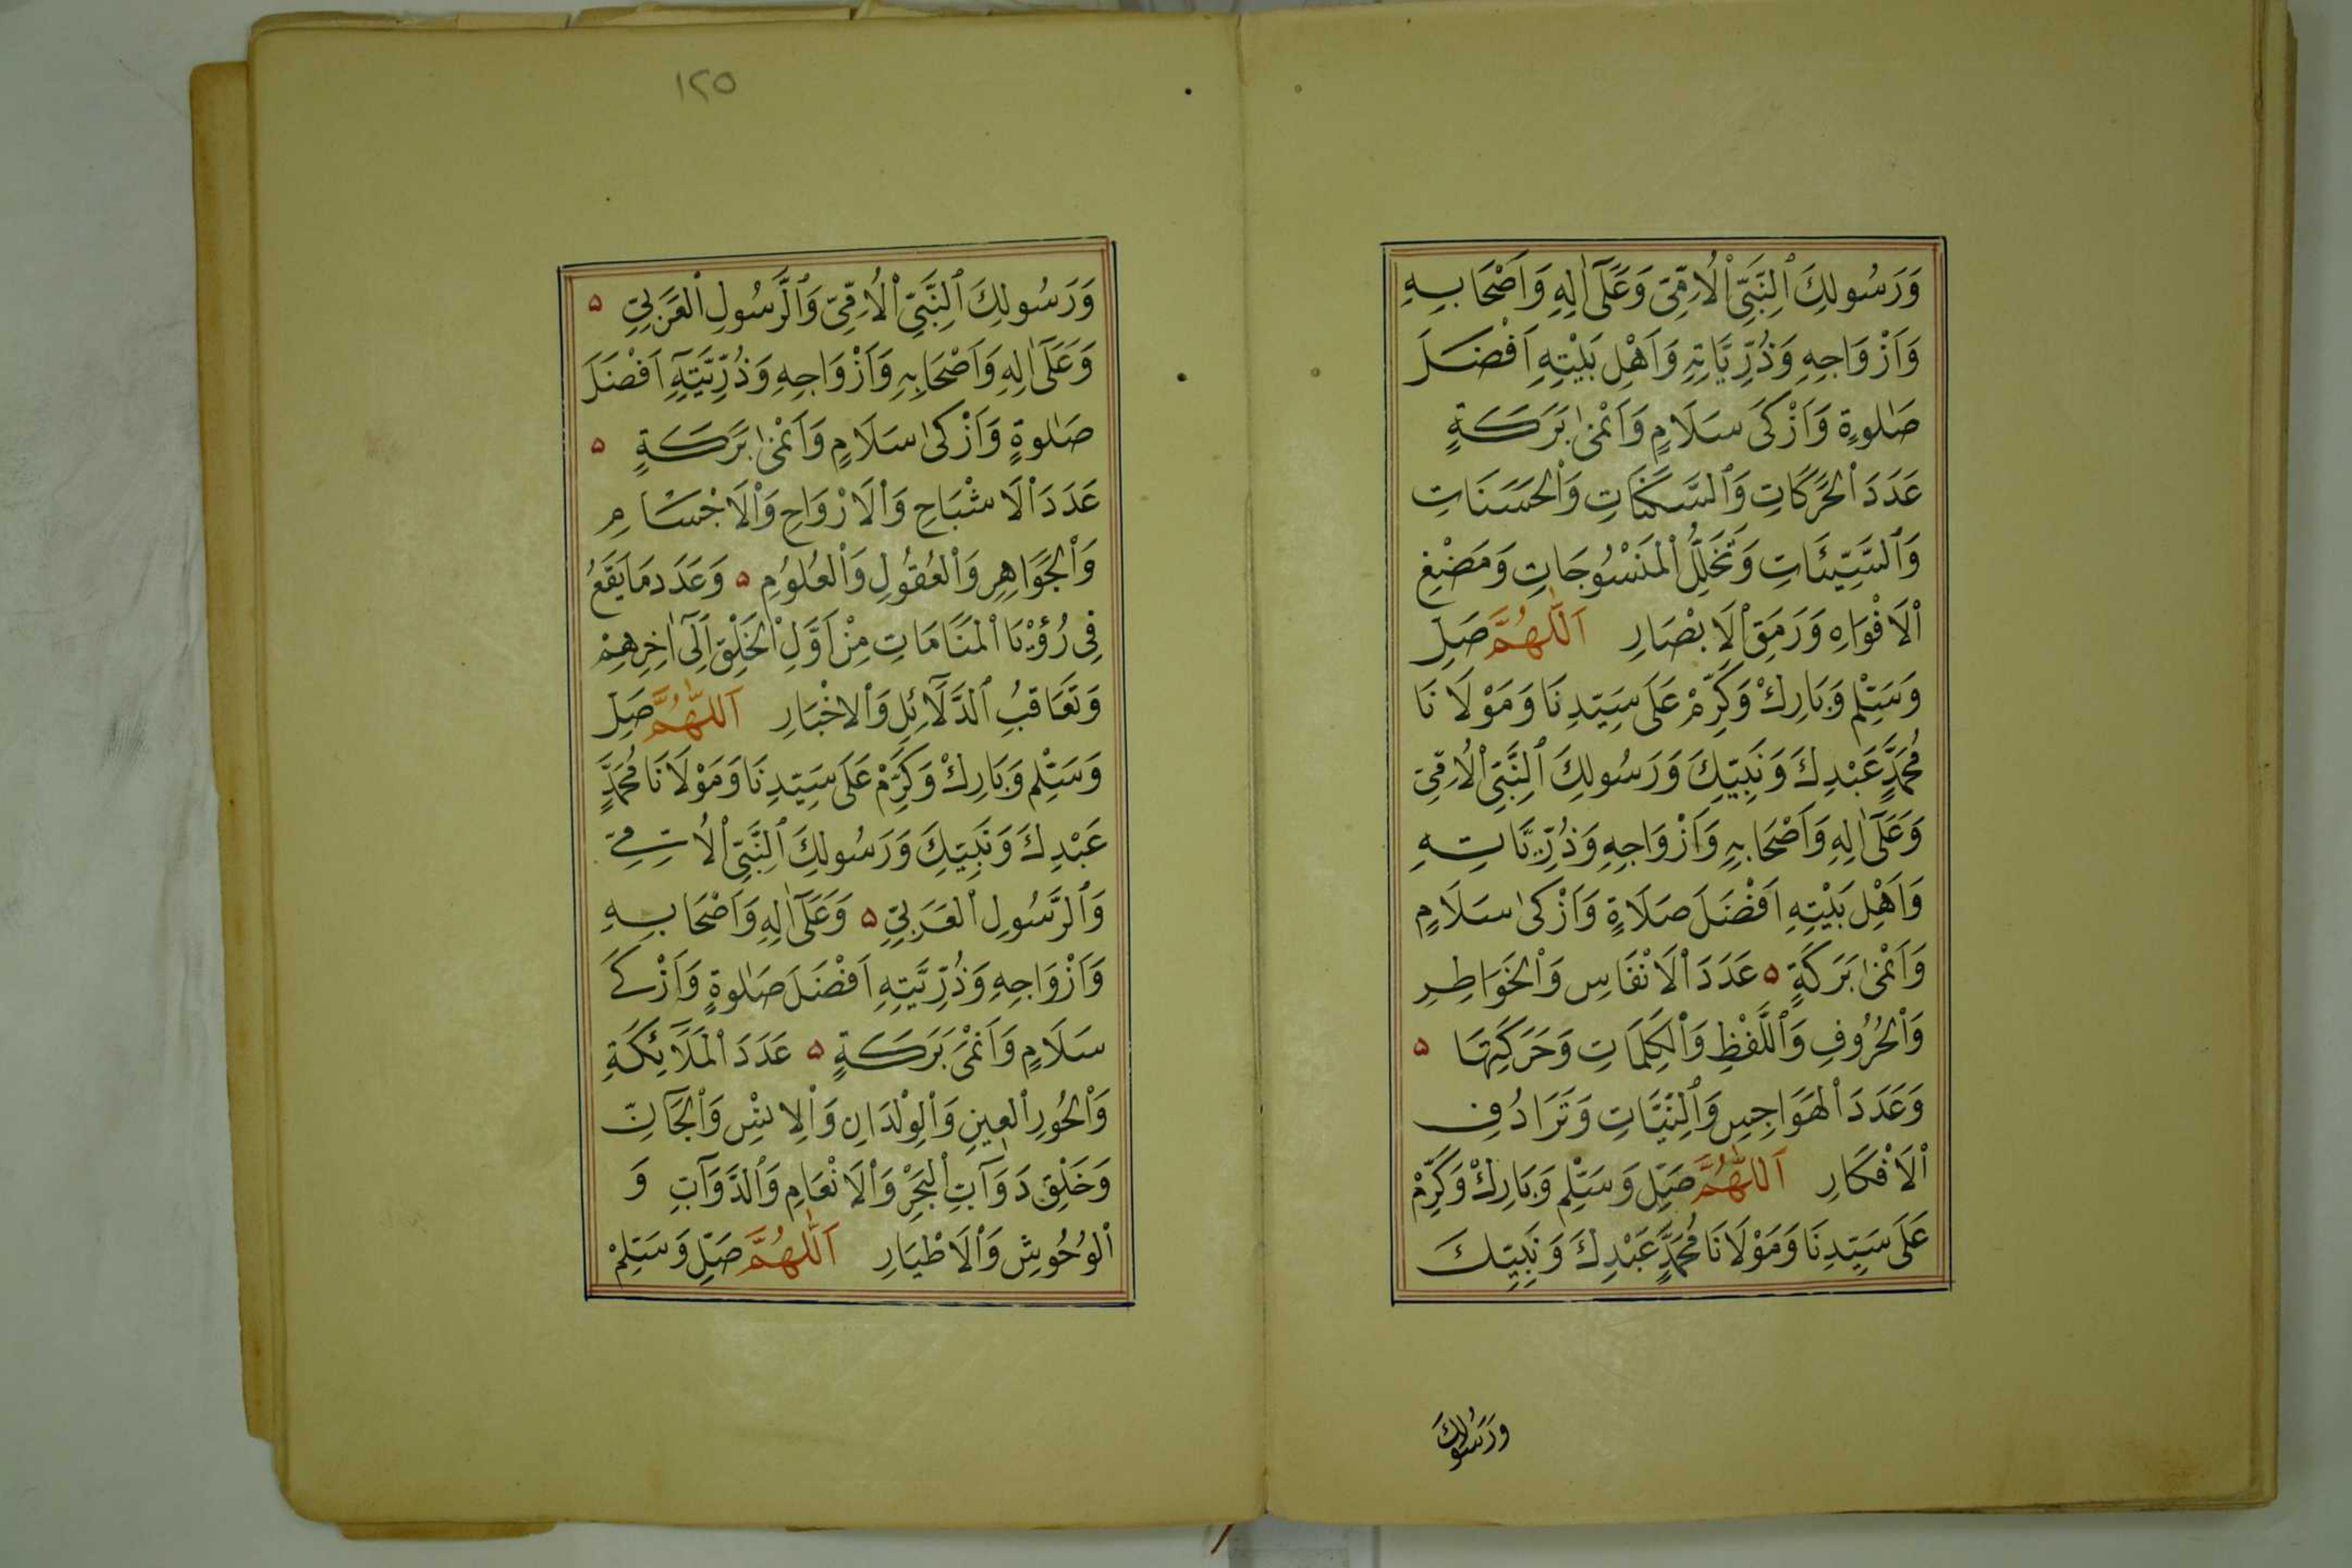 وَرَسُولِكَ ٱلنَّبِيِّ ٱلْاُمِّيِّ وَعَلَٓى اٰلِهِ وَاَصْحَابِهِ
وَاَزْوَاجِهِ وَذُرِّيَّاتِهِ وَاَهْلِ بَيْتِهِ اَفْضَلَ
صَلٰوةٍ وَاَزْكَى سَلَامٍ وَاَنْمٰى بَرَكَةٍ
عَدَدَ الْحَرَكَاتِ وَٱلسَّكَنَاتِ وَالْحَسَنَاتِ
وَٱلسَّيِّئَاتِ وَتَخَلُّلِ الْمَنْسُوجَاتِ وَمَضْغِ
الْاَفْوَاهِ وَرَمَقِ الْاَبْصَارِ اَللّٰهُمَّ صَلِّ
وَسَلِّمْ وَبَارِكْ وَكَرِّمْ عَلَى سَيِّدِنَا وَمَوْلَانَا
مُحَمَّدٍ عَبْدِكَ وَنَبِيِّكَ وَرَسُولِكَ ٱلنَّبِيِّ الْاُمِّيِّ
وَعَلَٓى اٰلِهِ وَاَصْحَابِهِ وَاَزْوَاجِهِ وَذُرِّيَّاتِهِ
وَاَهْلِ بَيْتِهِ اَفْضَلَ صَلَاةٍ وَاَزْكٰى سَلَامٍ
وَاَنْمٰى بَرَكَةٍ ۵ عَدَدَ الْاَنْفَاسِ وَالْخَوَاطِرِ
وَالْحُرُوفِ وَٱللَّفْظِ وَالْكَلِمَاتِ وَحَرَكَتِهَا ۵
وَعَدَدَ الْهَوَاجِسِ وَٱلنِّيَّاتِ وَتَرَادُفِ
الْاَفْكَارِ اَللّٰهُمَّ صَلِّ وَسَلِّمْ وَبَارِكْ وَكَرِّمْ
عَلَى سَيِّدِنَا وَمَوْلَانَا مُحَمَّدٍ عَبْدِكَ وَنَبِيِّكَ
وَرَسُولِكَ
١٢٥
وَرَسُولِكَ ٱلنَّبِيِّ الْاُمِّيِّ وَٱلرَّسُولِ الْعَرَبِيِّ ۵
وَعَلَٓى اٰلِهِ وَاَصْحَابِهِ وَاَزْوَاجِهِ وَذُرِّيَّتِهِ اَفْضَلَ
صَلٰوةٍ وَاَزْكٰى سَلَامٍ وَاَنْمٰى بَرَكَةٍ ۵
عَدَدَ الْاَشْبَاحِ وَالْاَرْوَاحِ وَالْاَجْسَامِ
وَالْجَوَاهِرِ وَالْعُقُولِ وَالْعُلُومِ ۵ وَعَدَدَ مَا يَقَعُ
فِى رُؤْيَا الْمَنَامَاتِ مِنْ اَوَّلِ الْخَلْقِ اِلَٓى اٰخِرِهِمْ
وَتَعَاقُبِ ٱلدَّلَٓائِلِ وَالْاَخْبَارِ اَللّٰهُمَّ صَلِّ
وَسَلِّمْ وَبَارِكْ وَكَرِّمْ عَلَى سَيِّدِنَا وَمَوْلَانَا مُحَمَّدٍ
عَبْدِكَ وَنَبِيِّكَ وَرَسُولِكَ ٱلنَّبِيِّ الْاُمِّيِّ
وَٱلرَّسُولِ الْعَرَبِيِّ ۵ وَعَلَٓى اٰلِهِ وَاَصْحَابِهِ
وَاَزْوَاجِهِ وَذُرِّيَّتِهِ اَفْضَلَ صَلٰوةٍ وَاَزْكَى
سَلَامٍ وَاَنْمَى بَرَكَةٍ ۵ عَدَدَ الْمَلَٓائِكَةِ
وَالْحُورِ الْعِينِ وَالْوِلْدَانِ وَالْاِنْسِ وَالْجَٓانِّ
وَخَلْقِ دَوَٓابِّ الْبَحْرِ وَالْاَنْعَامِ وَٱلدَّوَٓابِّ وَ
الْوُحُوشِ وَالْاَطْيَارِ اَللّٰهُمَّ صَلِّ وَسَلِّمْ